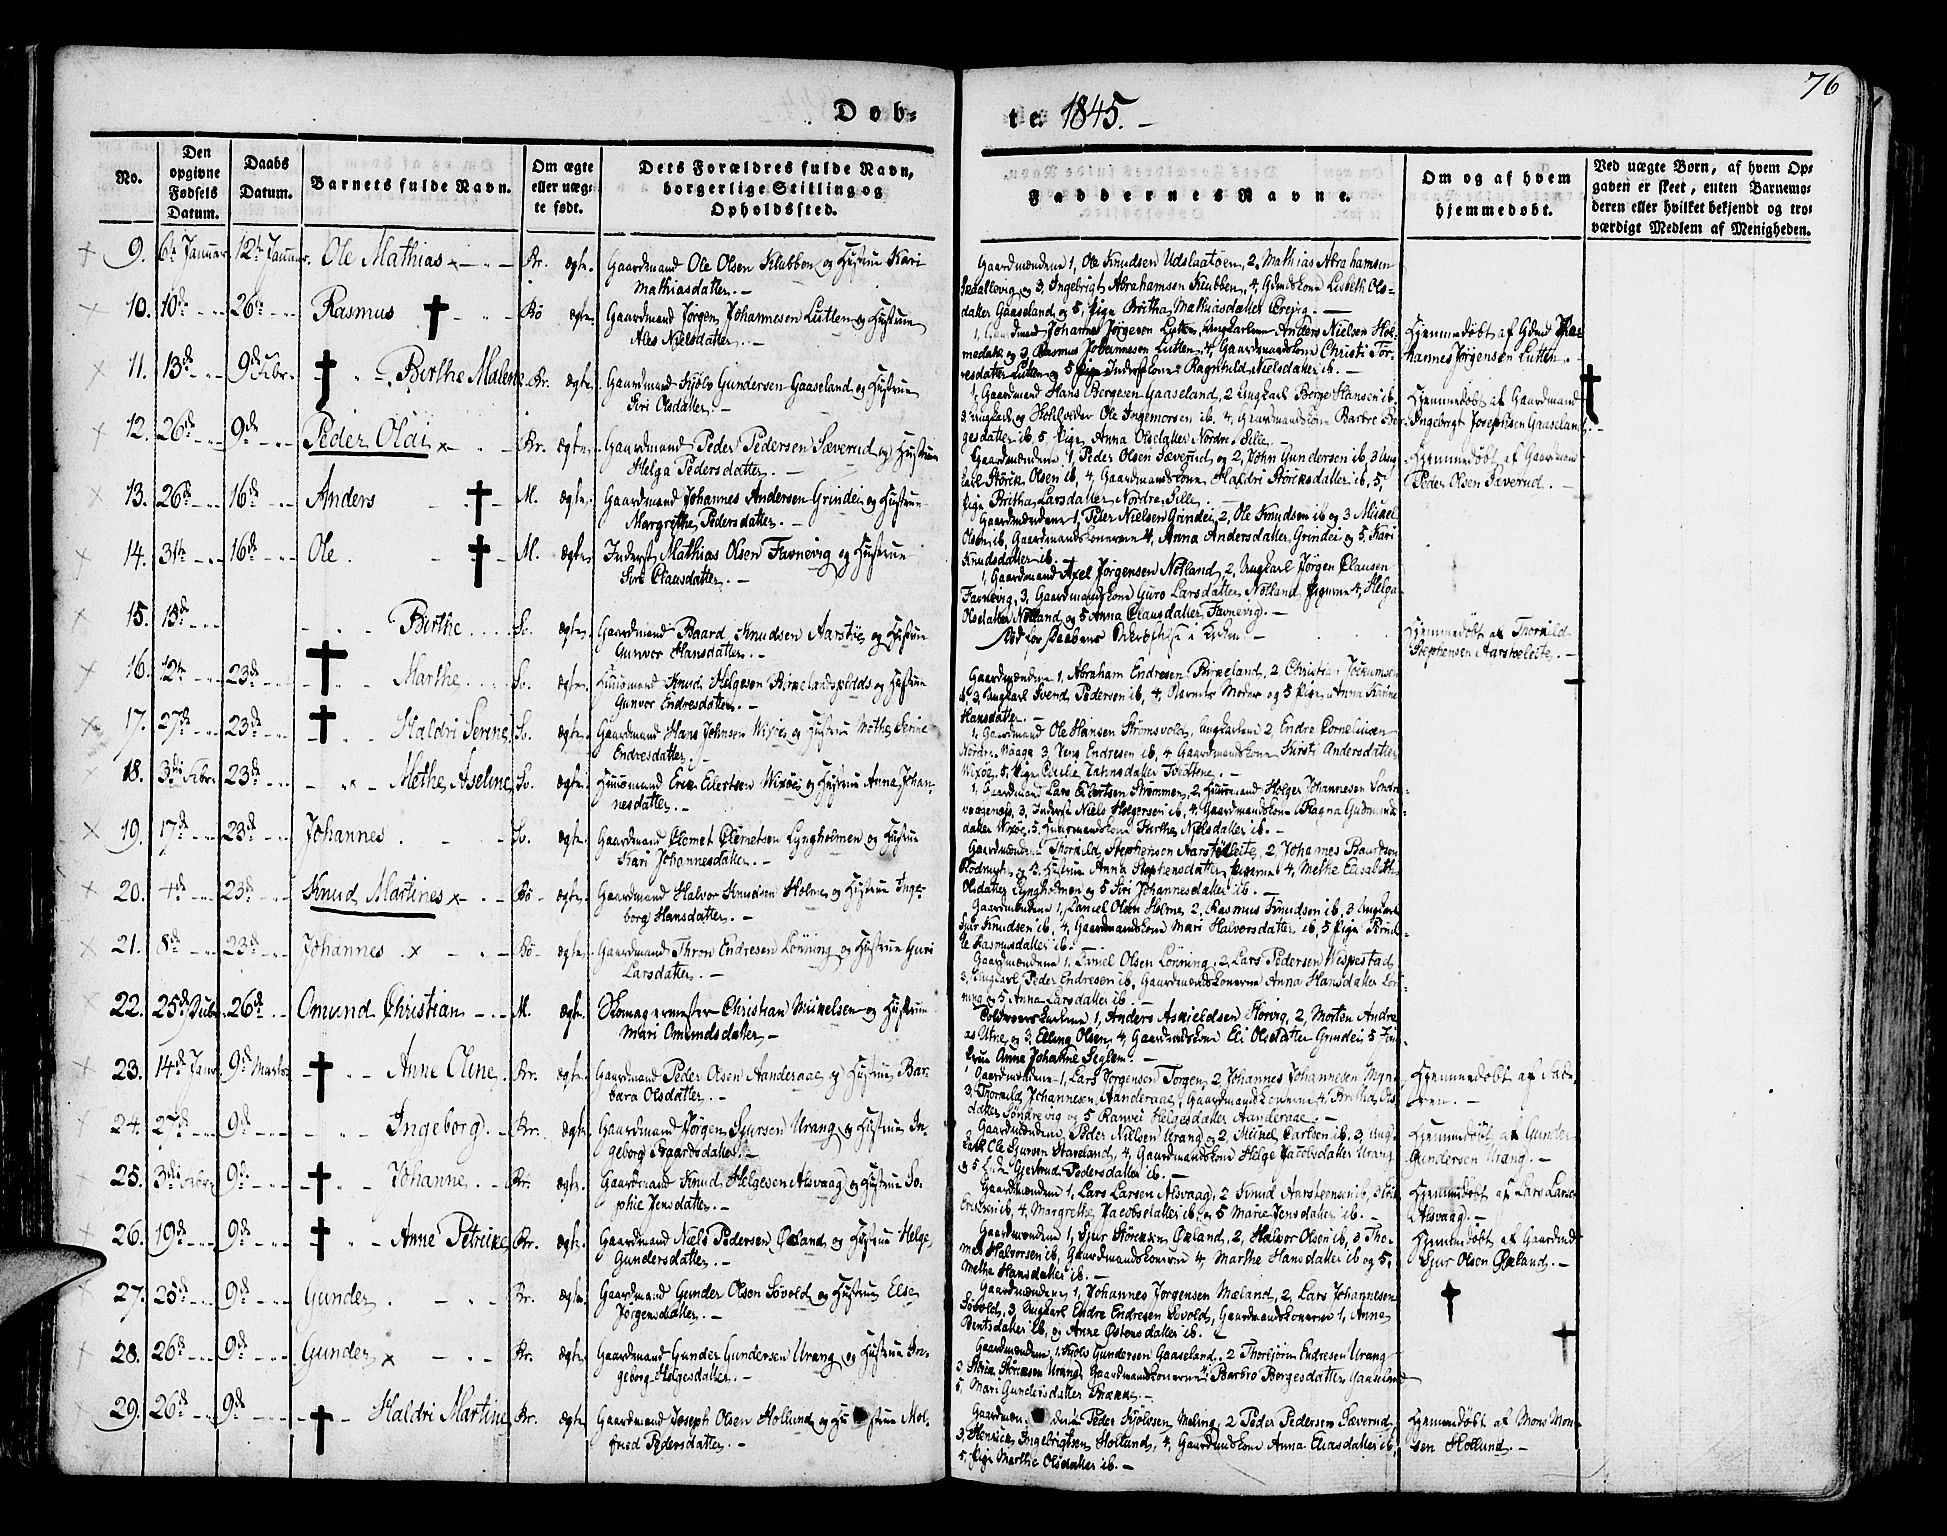 76
Døb-
te 1845. -
No.
Den opgivne Fødsels Datum.
Daabs Datum.
Barnets fulde Navn.
Om ægte eller uægte født.
Dets Forældres fulde Navn, borgerlige Stilling og Opholdssted.
Faddernes Navne.
Om og af hvem hjemmedøbt.
Ved uægte Børn, af hvem Opgaven er skeet, enten Barnemoderen eller hvilket bekjendt og troværdigt Medlem af Menigheden.
9. 6te Januar. 12te Januar. Ole Mathias Br. ægte. Gaardmand Ole Olsen Klubben og Hustrue Kari
Mathiasdatter. -
Gaardmændene 1, Ole Knudsen Udslaatøen, 2, Mathias Abrahamsen
og 3, Ingebrigt Abrahamsen Klubben, 4, Gmdskone Lisbeth Ols-
datter Gaaseland, og 5, Pige Britha Mathiasdatter
10. 10de 26de Rasmus Bø ægte. Gaardmand Jørgen Johannesen Lutten og Hustrue
Ales Nielsdatter. -
1, Gaardmand Johannes Jørgesen Lutten, Ungkarlene Anders Nielsen Hol-
medahl og 3, Rasmus Johannesen Lutten, 4, Gaardmandskone Christi Tor-
resdatter Lutten og 5 Pige Ragnhild Nielsdatter ib. -
Hjemmedøbt af Gmd Jo-
hannes Jørgensen Lutten. -
11. 13de 9de Febr. Berthe Malene Br. ægte. Gaardmand Kjølv Gundersen Gaaseland og Hustrue
Siri Olsdatter. -
1, Gaardmand Hans Bergesen Gaaseland, 2 Ungkarl Berge Hansen ib.
3 Ungkarl og Ole Ingemorsen ib. 4, Gaardmandskone Barbro Ber-
gesdatter ib, 5 Pige Anna Olsdatter Nordre Sille. -
Hjemmedøbt af Gaardmand
Ingebrigt Josephsen Gaaseland. -
12. 26de 9de Peder Oldi Br. ægte. Gaardmand Peder Pedersen Sæverud og Hustrue
Helga Pedersdatter. -
Gaardmændene 1, Peder Olsen Sæverud og 2, John Gundersen ib, 3 Ung-
karl Størck Olsen ib, 4, Gaardmandskone Haldri Størcksdatter ib, 5,
Pige Britha Larsdatter Nordre Sille. -
Hjemmedøbt af Gaardmand
Peder Olsen Sæverud. -
13. 26de 16de Anders M. ægte. Gaardmand Johannes Andersen Grindei og Hustrue
Margrethe Pedersdatter. -
Gaardmændene 1, Peter Nielsen Grindei, 2, Ole Knudsen ib og 3 Mikel
Olsen ib, Gaardmandskonerne 4, Anna Andersdatter Grindei og 5, Kari
Knudsdatter ib. -
14. 31te 16de Ole M. ægte. Inderst Mathias Olsen Favnevig og Hustrue
Siri Clausdatter. -
1, Gaardmand Axel Jørgensen Notland, 2, Ungkarl Jørgen Clausen
Favnevig, 3, Gaardmandskone Guro Larsdatter Notland, Pigerne 4, Helga
Olsdatter Notland og 5 Anna Clausdatter Favnevig. -
15. 18de Berthe So. ægte. Gaardmand Baard Knudsen Aarstøe og Hustrue
Gunvor Hansdatter. -
Død før Daabens
Hjemmedøbt af Thorkild
Stephensen Aarstøeleite. -
16. 12te 23de Marthe So. ægte. Huusmand Knud Helgesen Birkelandspladds og Hustrue
Gunvor Endresdatter. -
Gaardmændene 1, Abraham Endresen Birkeland, 2 Christian Jokumsen
ib, 3, Ungkarl Sverd Pedersen ib, 4, Barnets Moder og 5 Pige Anna Karine
Hansdatter. -
17. 27de 23de Haldri Serine So. ægte. Gaardmand Hans Johnsen Wixøe og Hustrue Methe Serine
Endresdatter. -
1, Gaardmand Ole Hansen Strømsvold, Ungkarlene 2, Endre Corneliusen
Nordre Vaage 3, Jens Endresen ib, 4 Gaardmandskone Kirsti Andersdatter
Wixøe, 5, Pige Cecilie
18. 3die Febr. 23de Methe Aseline So. ægte. Huusmand Erik Eilertsen Wixøe og Hustrue Anna Johan-
nesdatter. -
1, Gaardmand Lars Eilertsen Strømmen, 2, Huusmand Holger Johannesen
3, Inderst Niels Holgersen ib, 4, Gaardmandskone Ragna Gudmunds-
datter Wixøe, 5, Huusmandskone Berthe Nielsdatter ib. -
19. 17de 23de Johannes So. ægte. Gaardmand Clemet Clemetsen Lyngholmen og Hustrue
Kari Johannesdatter. -
Gaardmændene Thorkild Stephensen Aarstøeleite, 2, Johannes Baardsen
og 3. Hustrue Anna Stephensdatter, Pigerne 4, Methe Elisabeth
Olsdatter Lyngholmen og 5 Siri Johannesdatter ib. -
20. 4de 23de Knud Martines Bø ægte. Gaardmand Halvor Knudsen Holme og Hustrue Inge-
borg Hansdatter. -
Gaardmændene 1, Daniel Olsen Holme, 2, Rasmus Knudsen ib, 3 Ungkarl
Sjur Knudsen ib, 4, Gaardmandskone Mari Halvorsdatter ib, 5 Pige
Rasmusdatter ib. -
21. 8de 23de Johannes Bø ægte. Gaardmand Thron Endresen Lønning og Hustrue Guri
Larsdatter. -
Gaardmændene 1, Daniel Olsen Lønning, 2, Lars Pedersen Wespestad,
3, Ungkarl Peder Endresen ib, Gaardmandskonerne Anna Hansdatter Løn-
ning og 5 Anna Larsdatter ib. -
22. 25de Debr. 26de Omund Christian M. ægte. Skomagermester Christian Mikelsen og Hustrue
Mari Omundsdatter -
1, Anders Askieldsen Storvig, 2, Morten Andre-
as Utne, og 3, Elling Olsen, 4, Gaardmandskone Eli Olsdatter Grindei, 5
Anne Johanne Seglem. -
23. 14de Janr. 9de Marts. Anne Oline Br. ægte. Gaardmand Peder Olsen Aanderaae og Hustrue Bar-
bara Olsdatter. -
Gaardmændene 1, Lars Jørgensen Torgen, 2, Johannes Johannesen
3, Thorkild Johannesen Aanderaae, Gaardmandskonerne 4, Britha Ols-
datter Søndrevig og 5 Ranvei Helgesdatter Aanderaae. -
Hjemmedøbt af Fade-
ren. -
24. 27de 9de Ingeborg Br. ægte. Gaardmand Jørgen Sjursen Urang og Hustrue In-
geborg Baardsdatter. -
Gaardmændene, Peder Nielsen Urang og 2, Mikel Carlsen ib. 3 Ung-
karl Ole Sjursen Staveland, 4, Gaardmandskone Helge Jacobsdatter Urang
og 5 Pige Gjertrud Pedersdatter ib. -
Hjemmedøbt af Gunder
Gundersen Urang. -
25. 3die Febr. 9de Johanne Br. ægte. Gaardmand Knud Helgesen Alsvaag og Hustrue So-
phie Jensdatter. -
Gaardmændene 1, Lars Larsen Alsvaag, 2 Knud Aarsteensen ib, 3
Eriksen ib, 4, Margrethe Jacobsdatter ib, og 5 Marie Jensdatter ib. -
Hjemmedøbt af Lars Larsen
Alsvaag. -
26. 19de 9de Anne Petricke Br. ægte. Gaardmand Niels Pedersen Økland og Hustrue Helge
Gundersdatter. -
Gaardmændene 1, Sjur Størksen Økland, 2, Halvor Olsen ib, 3 Tho-
mas Halvorsen ib, Gaardmandskonerne 4 Marthe Hansdatter ib og 5,
Methe Hansdatter ib. -
Hjemmedøbt af Gaardmd
Sjur Olsen Økland. -
27. 25de 9de Gunder Br. ægte. Gaardmand Gunder Olsen Søvold og Hustrue Else
Jørgensdatter. -
Gaardmændene 1, Johannes Jørgensen Mæland, 2, Lars Johannesen
Søvold, 3, Ungkarl Endre Endresen Søvold, Gaardmandskonerne 1, Anna
Bentsdatter ib, og Anne Østensdatter ib.
28. 26de 9de Gunder Br. ægte. Gaardmand Gunder Gundersen Urang og Hustrue In-
geborg Helgesdatter. -
Gaardmændene, 1, Kjølv Gundersen Gaaseland, 2 Thorbjørn Endresen Urang
3, Størk Størksen Urang, Gaardmandskonerne Barbro Bergesdatter Gaaseland
5, Mari Gundersdatter
29. 26de 9de Haldri Martine Br. ægte. Gaardmand Joseph Olsen Hollund og Hustrue Mol-
fried Pedersdatter. -
Gaardmændene Peder Kjølvsen Meling, 2 Peder Pedersen Sæverud,
3, Henrick Ingebrigtsen Hollund, 4, Gaardmandskone Anna Eliasdatter ib,
5, Pige Marthe Olsdatter ib. -
Hjemmedøbt af Mons Mon-
sen Hollund. -